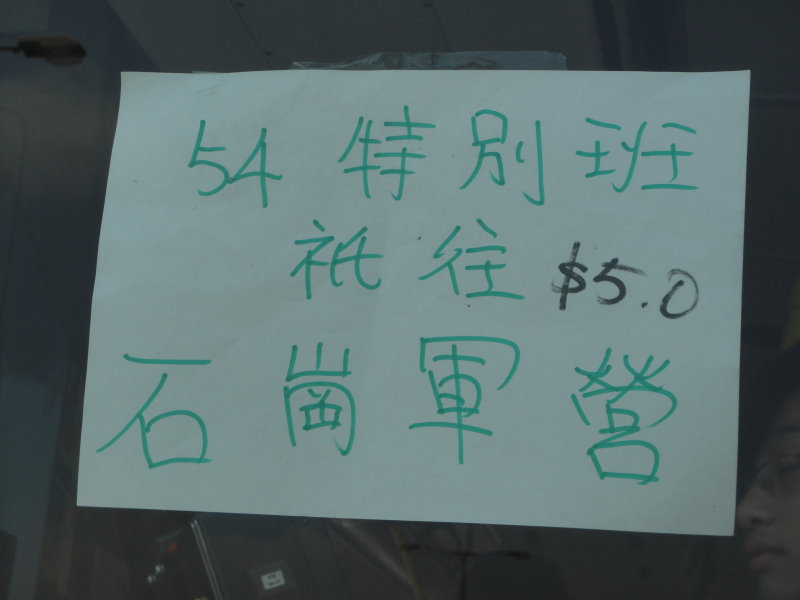 54 特別班
祇往 $5.0
石崗軍營